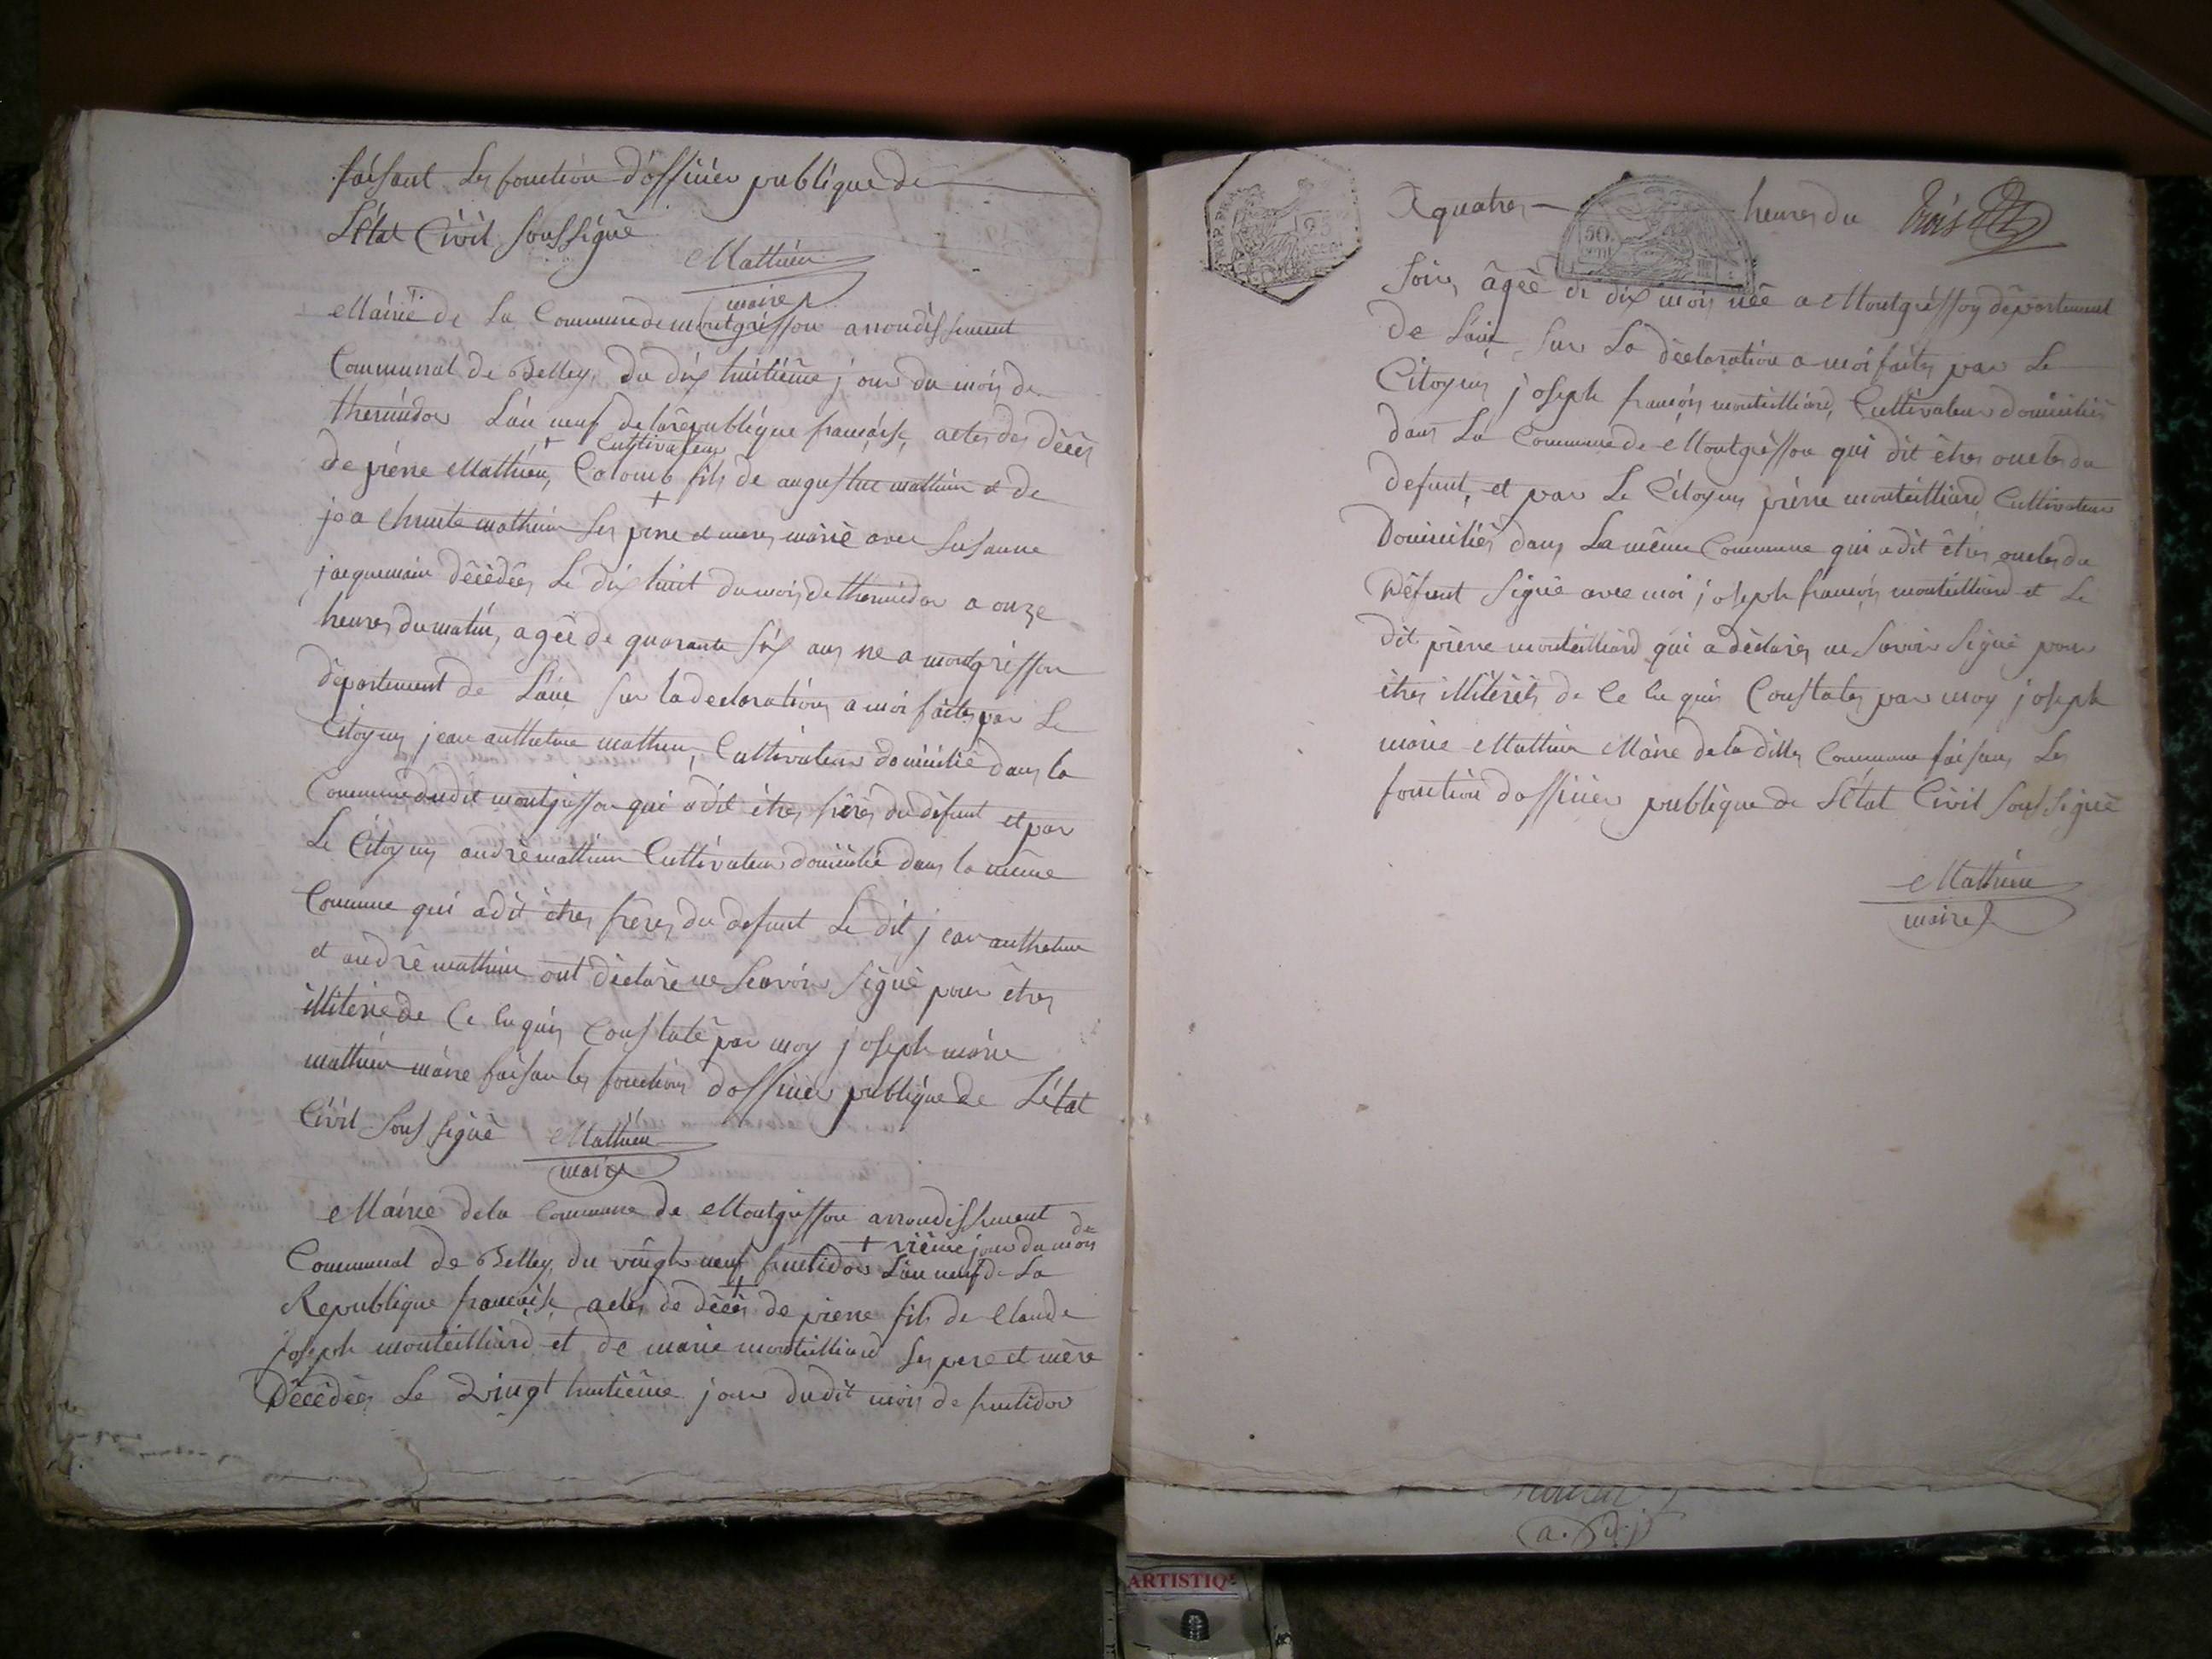 faisant les fonction d'officier publique de
L'état Civil soussigné
Mathieu
maire
Mairie de La Commune de montgriffon arrondissement
Communal de Belley, du dix huitiême jour du mois de
thermidor L'an neuf de la république francaise, actes des décès
+ Cultivateur
de piérre Mathieu, Colomb fils de augustin mathieu et de
mathieu ses pere et meres marié avec Susanne
jacquemain décédées Le dix huit du mois de thermidor a onze
heures du matin, agée de quarante six ans ne a montgriffon
département de L'ain sur la declaration a moi faite par Le
Citoyen jean anthelme mathieu, Cultivateur domicilié dans la
Commune dudit montgriffon qui a dit êtres frères du défunt et par
Le Citoyen andré mathieu Cultivateur domicilié dans la même
Commune qui a dit êtres frères du defunt Le dit jean anthelme
et andré mathieu ont déclaré ne Scavoir signé pour êtres
illiteré de Ce Constaté par moy joseph marie
mathieu maire faisan les fonctions d'officier publique de L'état
Civil soussigné Mathieu
maire
Mairie de la Commune de Montgriffon arrondissement
+ vième jour du mois de
Communal de Belley, du vingt neuf fructidor L'an neuf de La
Republique francaise, actes de décès de pierre fils de Claude
Joseph monteilliard et de marie monteilliard ses pere et mère
Décédées Le vingt huitiême jour dudit mois de fructidor
REP. FRA.
25
50
A quatres heures du
trois
soir, âgée de dix mois née a Montgriffon département
de L'ain sur La déclaration a moi faites par Le
Citoyen joseph françois monteilliard, Cultivateur domiciliés
dans La Commune de Montgriffon qui dit êtres oncles du
defunt, et par Le Citoyen piérre monteilliard Cultivateur
Domiciliés dans La même Commune qui a dit êtres oncles du
Défunt signé avec moi joseph françois monteilliard et Le
dit piérre monteilliard qui a déclarés ne savoir signé pour
êtres illiterés de Ce Constates par moy joseph
marie Mathieu Maire de la dittes Commune faisans Les
fonction d'officier publique de L'état Civil soussigné
Mathieu
maire
ARTISTIQ